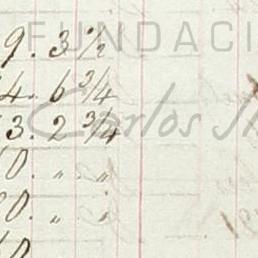 FUNDACI
9. 3 ½
4. 6 ¾
Carlos
3. 2 ¾
0. " "
0. " "
0